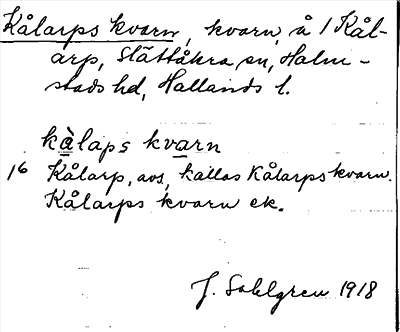 Kålarps kvarn, kvarn, å 1 Kål-
arp, Slättåkra sn, Halm-
stads hd, Hallands l.
kàlaps kvarn
16 Kålarp, avs, kallas Kålarps kvarn.
Kålarps kvarn ek.
J. Sahlgren 1918